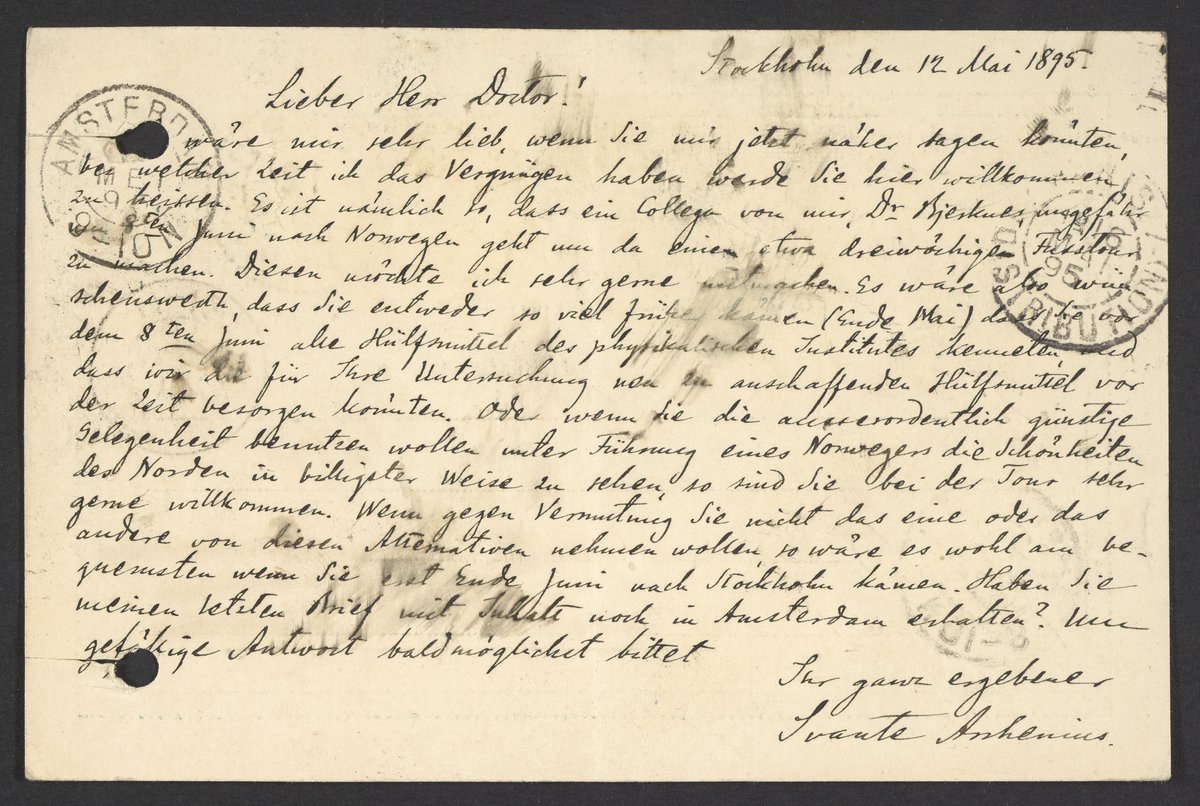 Stockholm den 12 Mai 1895.
Lieber Herr Doctor!
wäre mir sehr lieb, wenn Sie mir jetzt näher sagen könnten,
bei welcher Zeit ich das Vergnügen haben werde Sie hier willkommen
zu heissen. Es ist nämlich so, dass ein College von mir, Dr Bjerknes ungefähr
8ten Juni nach Norwegen geht um da einen etwa dreiwöchigen Fusstour
zu machen. Diesen möchte ich sehr gerne mitmachen. Es wäre also wün-
schenswerth, dass Sie entweder so viel früher kämen (Ende Mai) dass Sie vor
dem 8ten Juni alle Hülfsmittel des physikalischen Institutes kenneten, und
dass wir die für Ihre Untersuchung neu zu anschaffenden Hülfsmittel vor
der Zeit besorgen könnten. Oder wenn Sie die ausserordentlich günstige
Gelegenheit benutzen wollen unter Führung eines Norwegers die Schönheiten
des Norden in billigster Weise zu sehen, so sind Sie bei der Tour sehr
gerne willkommen. Wenn gegen Vermutung Sie nicht das eine oder das
andere von diesen Alternativen nehmen wollen so wäre es wohl am be-
quemsten wenn Sie erst Ende Juni nach Stockholm kämen. Haben Sie
meinen letzten Brief mit Inhalt noch in Amsterdam erhalten? Um
gefällige Antwort baldmöglichst bittet
Ihr ganz ergebener
Svante Arrhenius.
AMSTERD
MEI
95
16
MAI
95
DISTRIBUTION